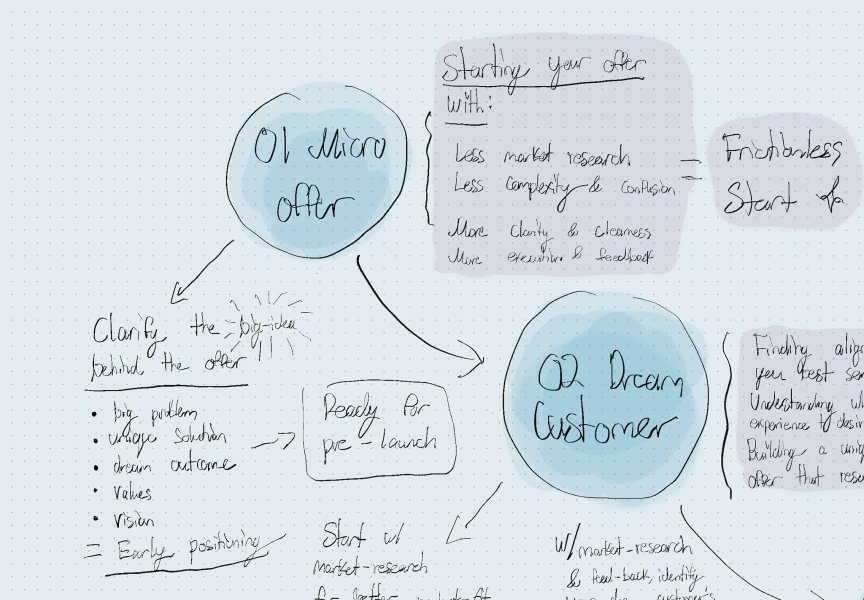 01 Micro
offer
Starting your offer
with:
Less market research
Less complexity & confusion
More Clarity & clearness
More execution & feedback
=
Frictionless
Start
Clarify the big-idea
behind the offer
• big problem
• unique solution
• dream outcome
• values
• vision
= Early positioning
Ready for
pre-launch
02 Dream
Customer
Finding
your best
Understanding
experience to
Building a
offer that
Start w/
market-research
for better
w/ market-research
& feed-back, identify
customer's